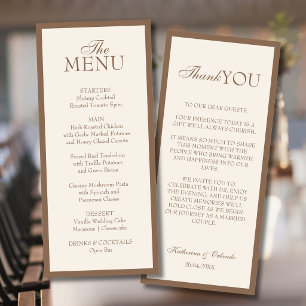 The
MENU
STARTERS
Shrimp Cocktail
Roasted Tomato Soup
MAIN
Herb Roasted Chicken
with Garlic Mashed Potatoes
and Honey Glazed Carrots
Seared Beef Tenderloin
with Truffle Potatoes
and Green Beans
Creamy Mushroom Pasta
with Spinach and
Parmesan Cheese
DESSERT
Vanilla Wedding Cake
Macarons | Cheesecake
DRINKS & COCKTAILS
Open Bar
Thank YOU
TO OUR DEAR GUESTS,
YOUR PRESENCE TODAY IS A
GIFT WE'LL ALWAYS CHERISH.
IT MEANS SO MUCH TO SHARE
THIS MOMENT WITH THE
PEOPLE WHO BRING WARMTH
AND HAPPINESS INTO OUR
LIVES.
WE INVITE YOU TO
CELEBRATE WITH US, ENJOY
THE EVENING, AND HELP US
CREATE MEMORIES WE'LL
HOLD CLOSE AS WE BEGIN
OUR JOURNEY AS A MARRIED
COUPLE.
Katherina & Orlando
26.04.20XX